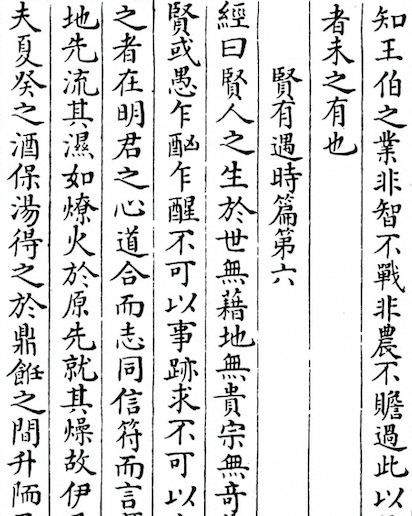 知王伯之業非智不戰非農不瞻過此以
者未之有也
賢有遇時篇第六
經曰賢人之生於世無藉地無貴宗無奇
賢或愚乍酗乍醒不可以事跡求不可以
之者在明君之心道合而志同信符而言
地先流其濕如燎火於原先就其燥故伊
夫夏癸之酒保湯得之於鼎飪之間升陑